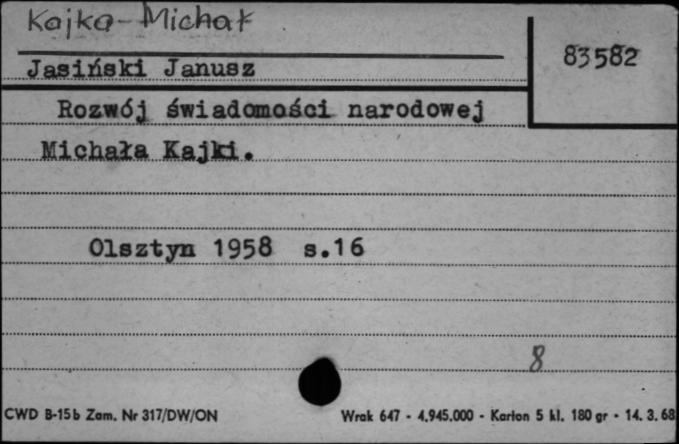 Kajka Michał
83582
Jasiński Janusz
Rozwój świadomości narodowej
Michała Kajki.
Olsztyn 1958 s.16
8
CWD B-15b Zam. Nr 317/DW/ON
Wrak 647 - 4.945.000 - Karton 5 kl. 180 gr - 14. 3. 68